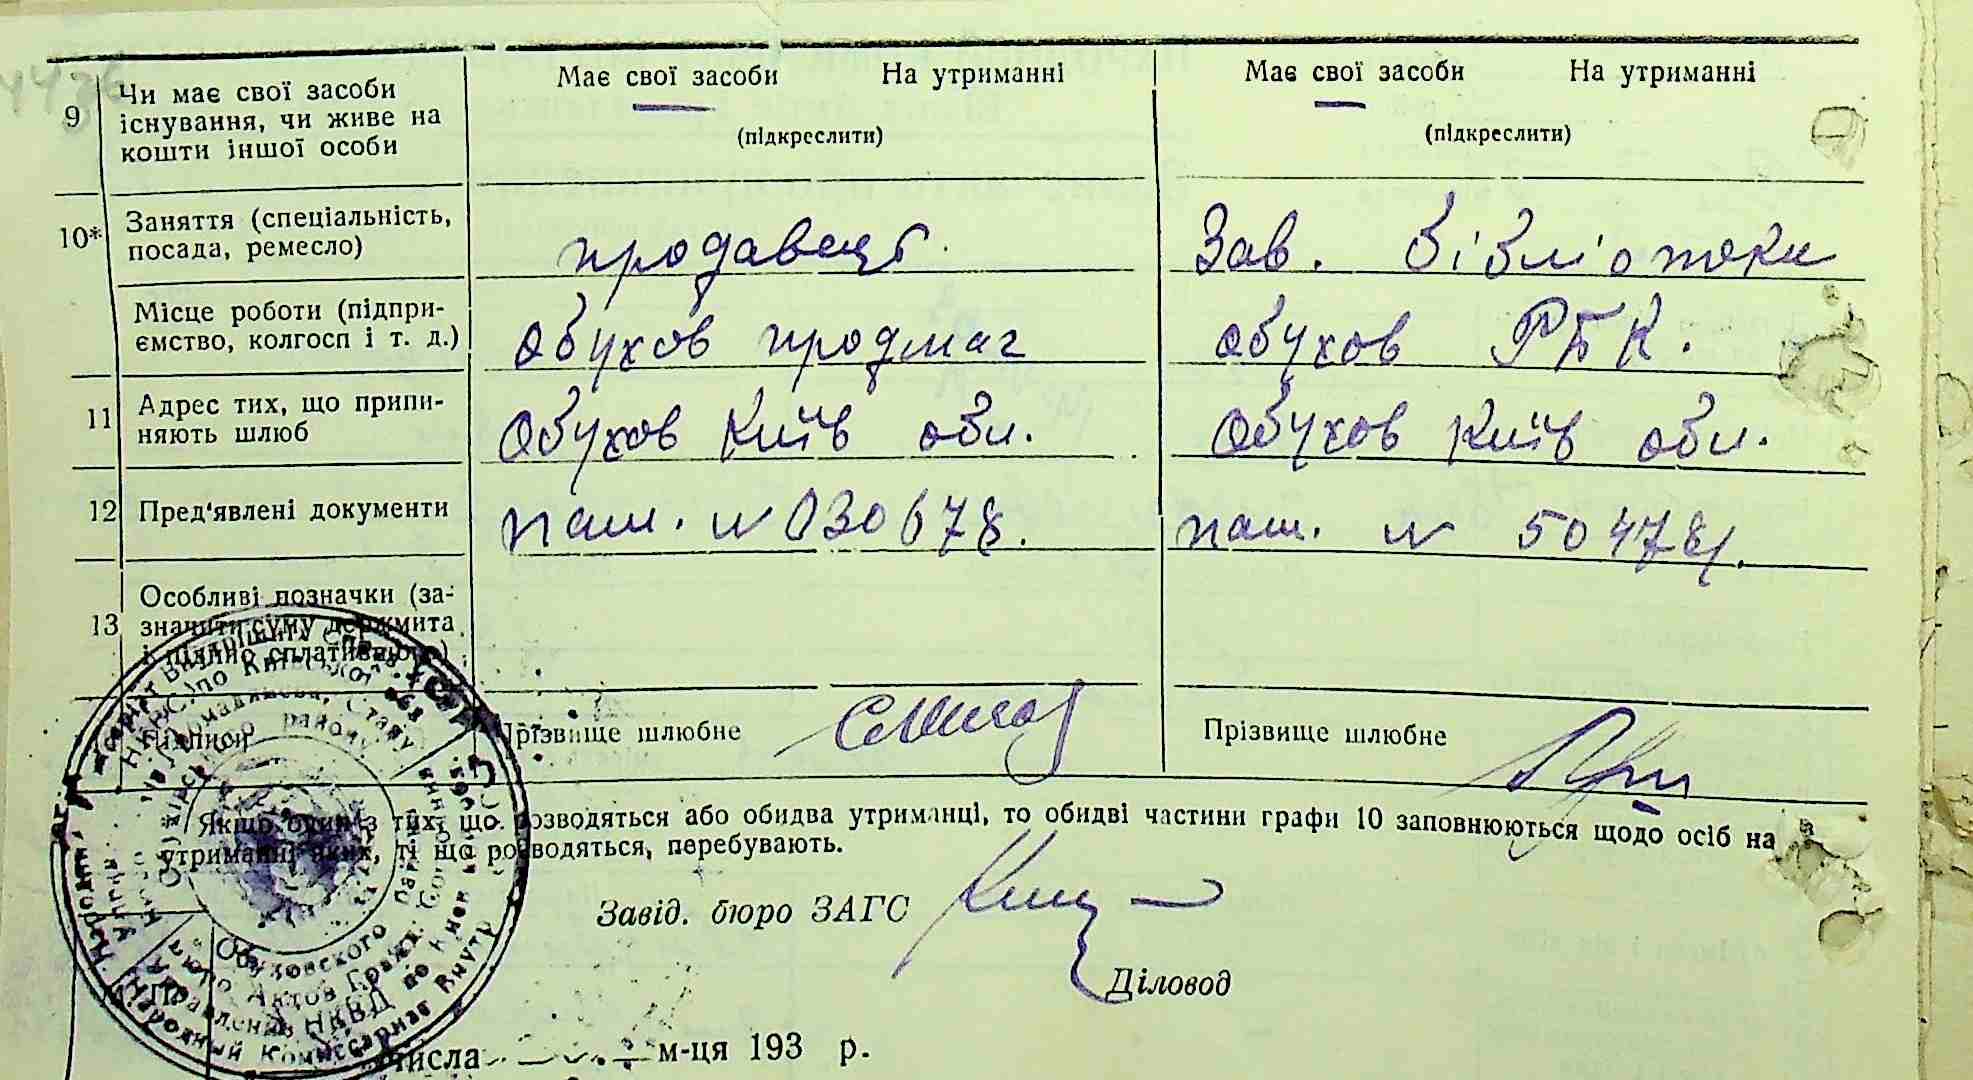 Має свої засоби На утриманні Має свої засоби На утриманні
(підкреслити) (підкреслити)
9 Чи має свої засоби
існування, чи живе на
кошти іншої особи
10* Заняття (спеціальність,
посада, ремесло)
продавець Зав. бібліотеки
Місце роботи (підпри-
ємство, колгосп і т. д.)
Обухов продмаг Обухов РБК.
11 Адрес тих, що припи-
няють шлюб
Обухов Київ обл. Обухов Київ обл.
12 Пред'явлені документи
паш. № 030678. паш. №
13 Особливі позначки (за-
значити суму держмита
і підпис
Підписи
Прізвище шлюбне Прізвище шлюбне
Якщо один з тих, що розводяться або обидва утриманці, то обидві частини графи 10 заповнюються щодо осіб на
утриманні яких, ті що розводяться, перебувають.
Завід. бюро ЗАГС
Діловод
М. П.
числа м-ця 193 р.
Обуховского
Бюро Актов Гражд.
Управления НКВД по Киев
Народный Комиссариат Внутр